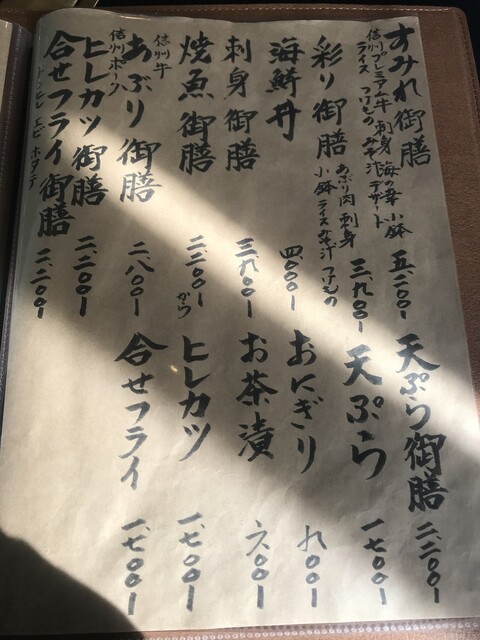 すみれ御膳
信州プレミアム牛 刺身 海の幸 小鉢
ライス つけもの みそ汁 デザート
五、二〇〇ー
彩り御膳
あぶり肉 刺身
小鉢 ライス 汁 つけもの
三、九〇〇ー
海鮮丼
四、〇〇〇ー
刺身御膳
三、九〇〇ー
焼魚御膳
二、二〇〇ーから
信州牛
あぶり御膳
二、八〇〇ー
信州ポーク
ヒレカツ御膳
二、二〇〇ー
合せフライ御膳
エビ ホタテ
二、二〇〇ー
天ぷら御膳
二、二〇〇ー
天ぷら
一、七〇〇ー
おにぎり
九〇〇ー
お茶漬
六〇〇ー
ヒレカツ
一、七〇〇ー
合せフライ
一、七〇〇ー